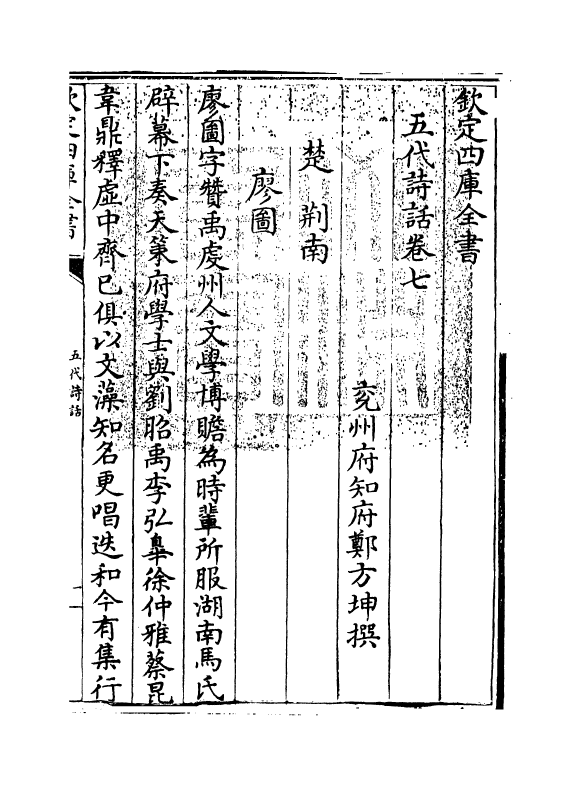 欽定四庫全書
五代詩話卷七
兖州府知府鄭方坤撰
楚 荆南
廖圖
廖圖字贊禹虔州人文學博贍為時輩所服湖南馬氏
辟幕下奏天策府學士與劉昭禹李弘臯徐仲雅蔡昆
韋鼎釋虛中齊已俱以文藻知名更唱迭和今有集行
欽定四庫全書
五代詩話
一